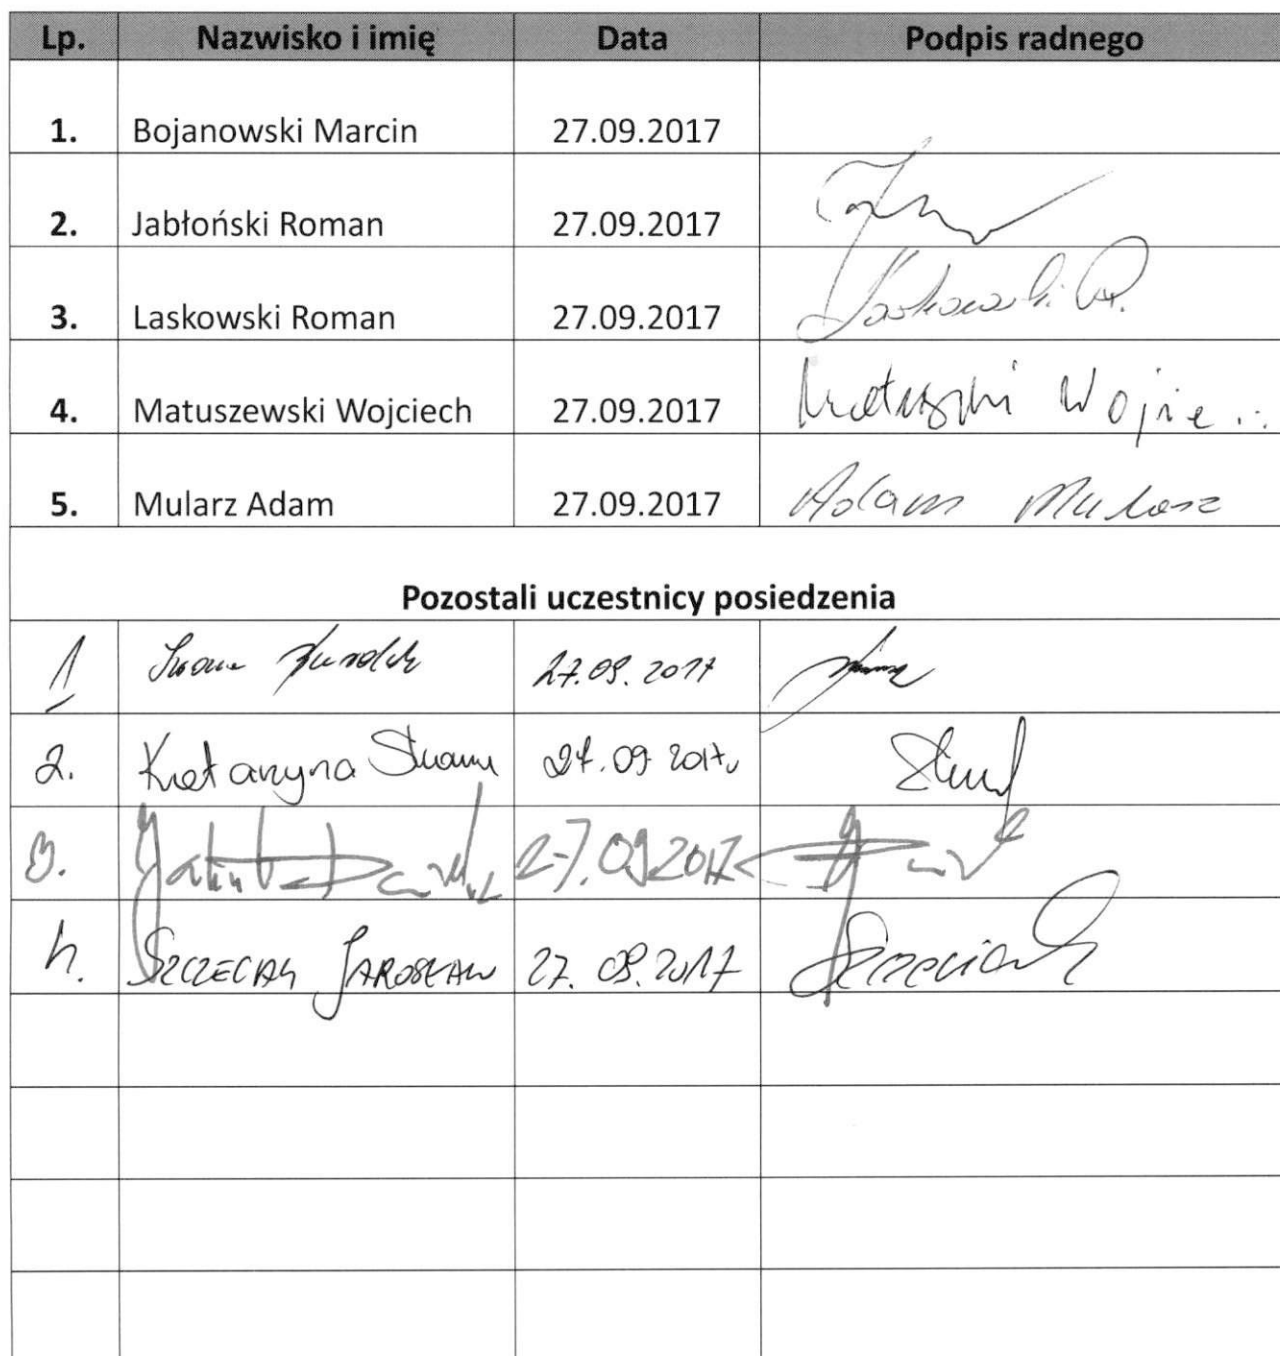 Lp. Nazwisko i imię Data Podpis radnego
1. Bojanowski Marcin 27.09.2017
2. Jabłoński Roman 27.09.2017
3. Laskowski Roman 27.09.2017 Laskowski R.
4. Matuszewski Wojciech 27.09.2017
5. Mularz Adam 27.09.2017 Adam Mularz
Pozostali uczestnicy posiedzenia
1 27.09.2017
2. Katarzyna 27.09.2017
3. 27.09.2017
4. JAROSŁAW 27.09.2017